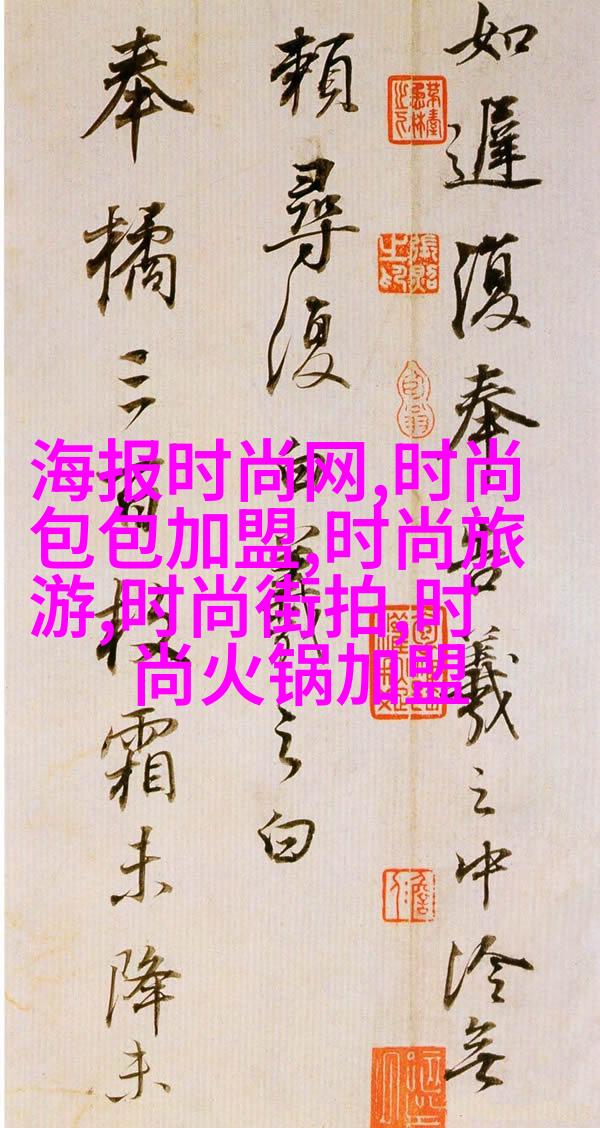 如遲復奉告羲之中冷無
賴尋復白羲之白
奉橘三百枚霜未降未
海报时尚网,时尚
包包加盟,时尚旅
游,时尚街拍,时
尚火锅加盟